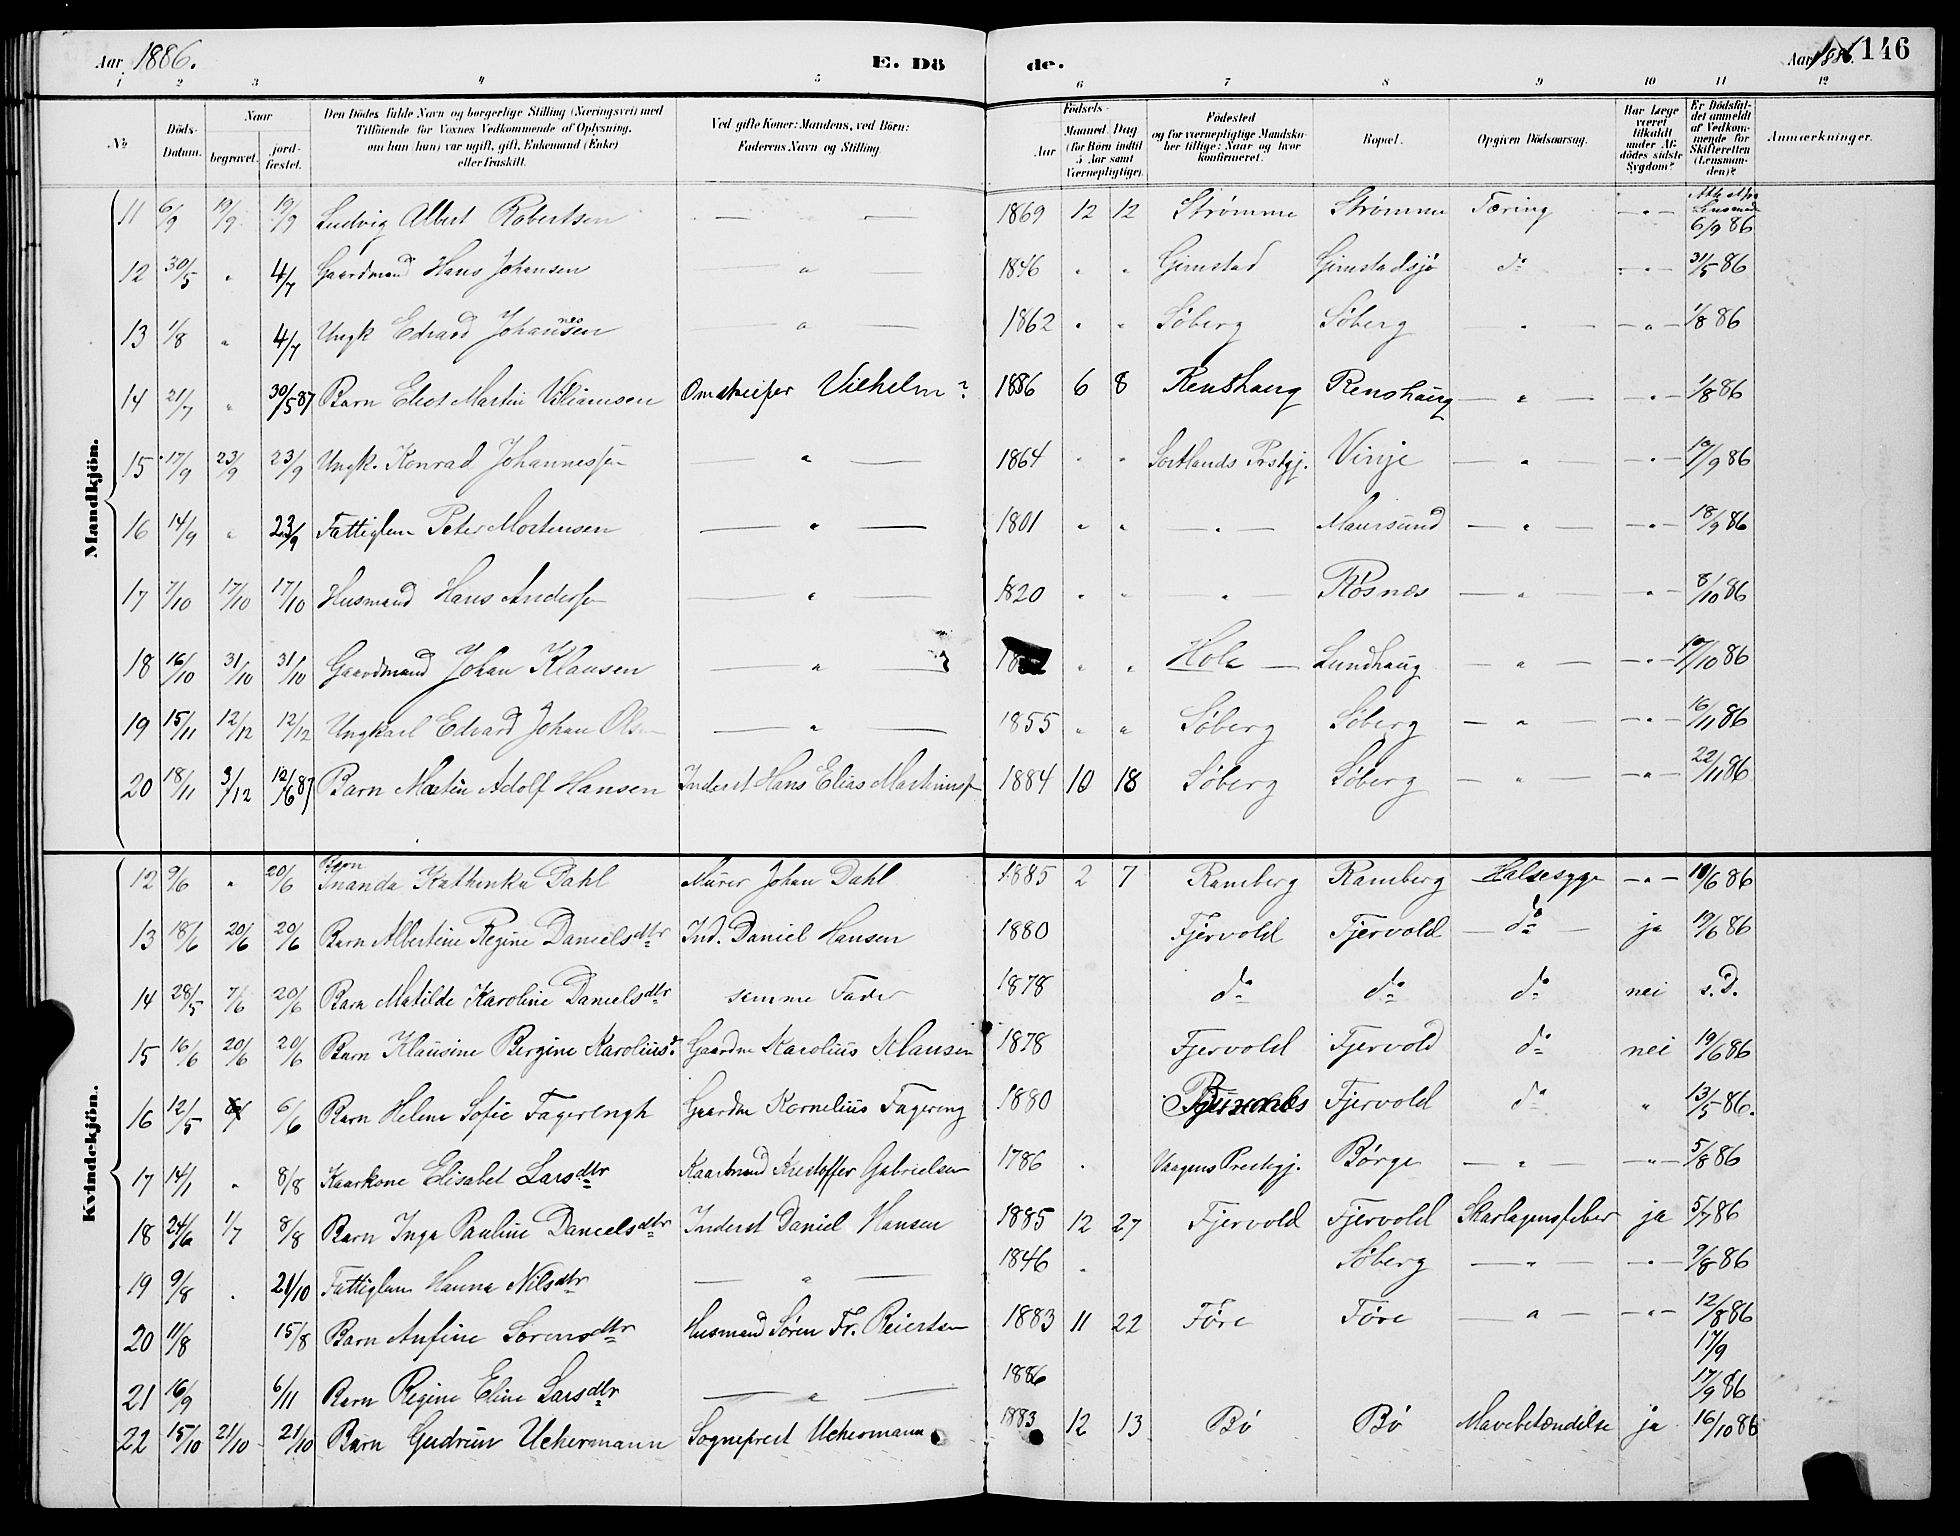 Aar 1886. E. Dö de. Aar 1886. 146
1 2 3 4 5 6 7 8 9 10 11 12
No
Döds-Datum.
Naar
begravet.
jord-fæstet.
Den Dödes fulde Navn og borgerlige Stilling (Næringsvei) med
Tilföiende for Voxnes Vedkommende af Oplysning,
om han (hun) var ugift, gift, Enkemand (Enke)
eller fraskilt.
Ved gifte Koner: Mandens, ved Börn:
Faderens Navn og Stilling
Födsels-
Aar
Maaned Dag
(for Börn indtil
5 Aar samt
Værnepligtige).
Födested
og for værnepligtige Mandska-
ber tillige: Naar og hvor
konfirmeret.
Bopæl.
Opgiven Dödsaarsag.
Har Læge
været
tilkaldt
under Af-
dödes sidste
Sygdom?
Er Dödsfal-
det anmeldt
af Vedkom-
mende for
Skifteretten
(Lensman-
den)?
Anmærkninger.
Mandkjön.
11 6/9 19/9 19/9 Ludvig Albert Robertsen — — 1869 12 12 Strømme Strømme Tæring -"- 6/9 86
12 30/5 " 4/7 Gaardmand Hans Johansen — " 1846 " " Gimstad Gimstadsjø do -"- 31/5 86
13 1/8 " 4/7 Ungk Edvard Johannesen — " — 1862 " " Søberg Søberg " — -"- 1/8 86
14 21/7 " 30/5 87 Barn Eliot Martin Viliamsen Vilhelm ? 1886 6 8 Renshaug Renshaug — " — -"- 1/8 86
15 17/9 23/9 23/9 Ungk. Konrad Johannessen — " — 1864 " " Sortlands Prstgj. Vinje — " — -"- 19/9 86
16 14/9 " 23/9 Fattiglem Peter Mortensen — " — 1801 " " -"- Maursund — " — -"- 18/9 86
17 7/10 17/10 17/10 Husmand Hans Andersen — " — 1820 " " " Røsnes — " — -"- 8/10 86
18 16/10 31/10 31/10 Gaardmand Johan Klausen — " — 18 " " Hola — Lundhaug — " — -"- 19/10 86
19 15/11 12/12 12/12 Ungkarl Edvard Johan Olsen — " — 1855 " " Søberg Søberg — " — -"- 16/11 86
20 18/11 3/12 12/6 87 Barn Martin Adolf Hansen Inderst Hans Elias Martinusen 1884 10 18 Søberg Søberg — " — -"- 22/11 86
Kvindekjön.
12 9/6 " 20/6 Barn Inanda Kathinka Dahl Murer Johan Dahl 1885 2 7 Ramberg Ramberg Halsesyge -"- 10/6 86
13 18/6 20/6 20/6 Barn Albertine Regine Danielsdtr Ind. Daniel Hansen 1880 Fjervold Fjervold — do — ja 19/6 86
14 28/5 7/6 20/6 Barn Matilde Karoline Danielsdtr samme Fader 1878 do do do nei s.D.
15 16/6 20/6 20/6 Barn Klausine Bergine Karoliusd. Gaardm Karolius Klausen 1878 Fjervold Fjervold do nei 19/6 86
16 12/5 6/6 Barn Helene Sofie Fagerengh Gaardm Kornelius Fagereng 1880 Fjervold do " 13/5 86.
17 14/1 " 8/8 Kaarkone Elisabet Larsdtr Kaarmand Kristoffer Gabrielsen 1786 . Vaagens Prestgj. Børge — " — -"- 5/8 86
18 24/6 1/7 8/8 Barn Inga Pauline Danielsdtr Inderst Daniel Hansen 1885 12 27 Fjervold Fjervold Skarlagensfeber ja 5/7 86
19 9/8 . 21/10 Fattiglem Hanna Nilsdtr — " — 1846 . Søberg — " — -"- 9/8 86
20 11/8 15/8 Barn Anfine Sørensdtr Husmand Søren Fr. Reiertsen 1883 11 22 Føre Føre — " — -"- 12/8 86
17/9
21 16/9 6/11 Barn Regine Eline Larsdtr — " — 1886 17/9 86
22 15/10 21/10 21/10 Barn Gudrun Uchermann Sogneprest Uchermann 1883 12 13 Bø Bø Mavebetændelse ja 16/10 86